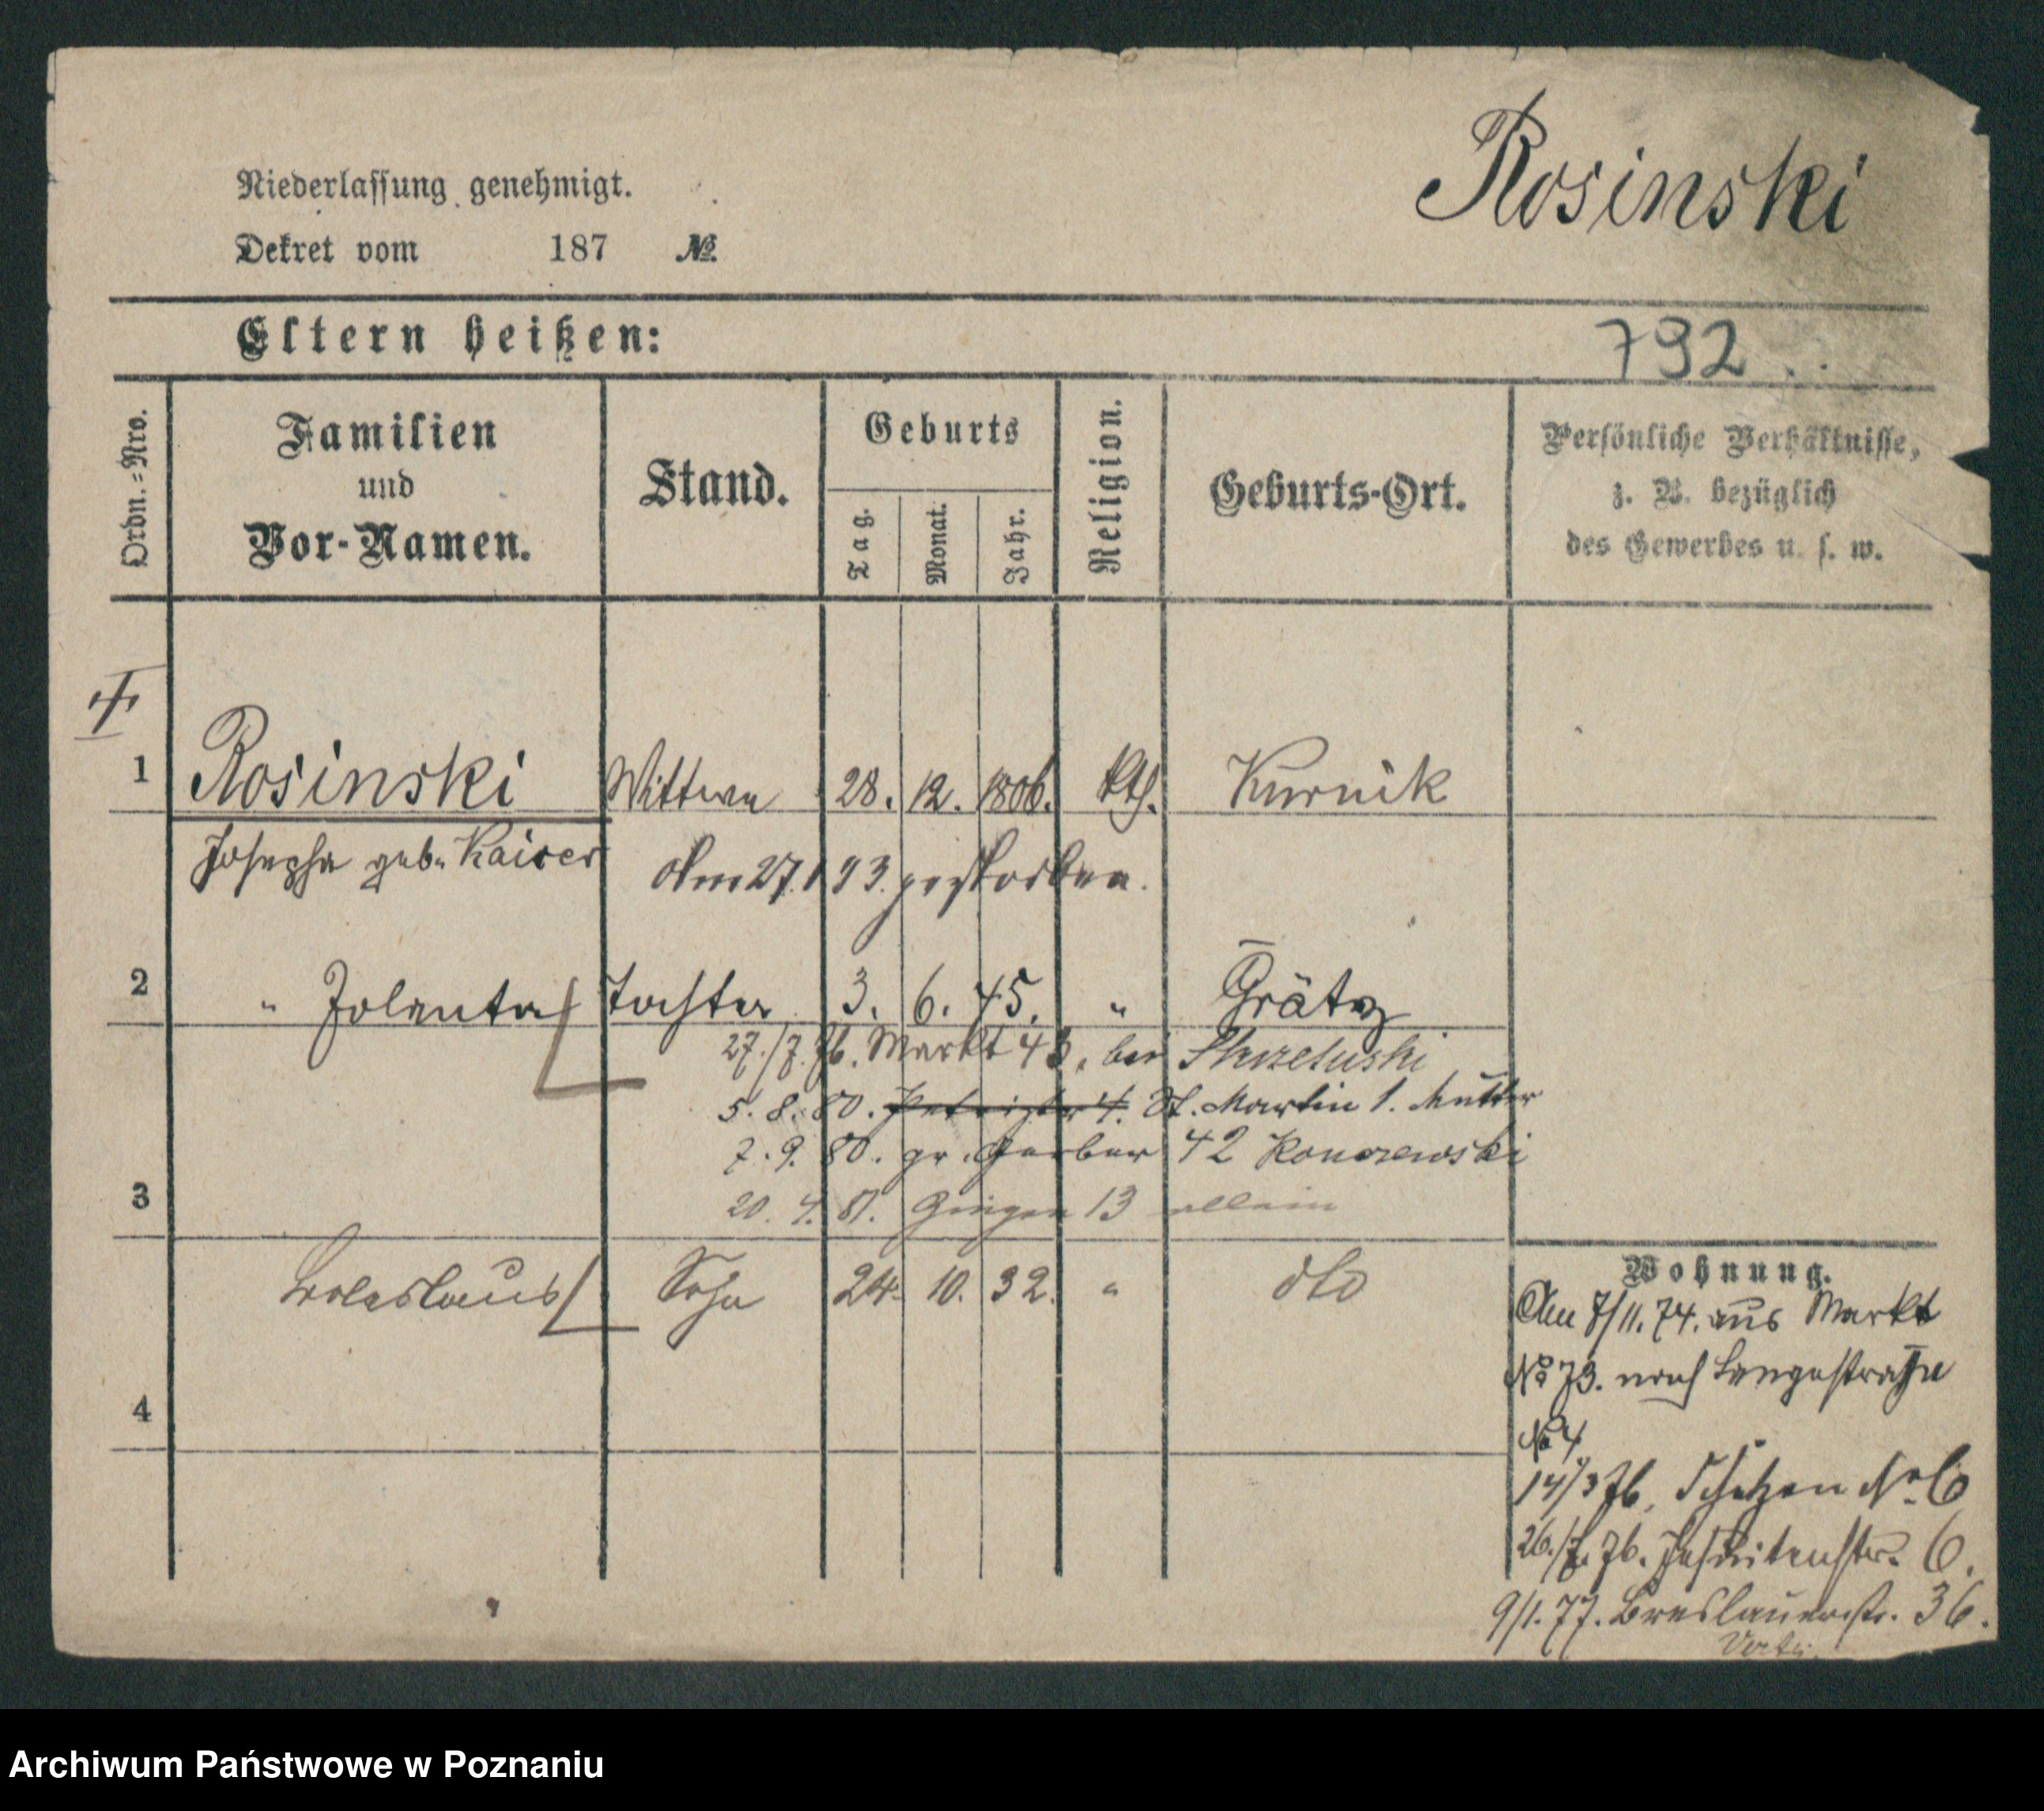 Rosinski
Niederlassung genehmigt.
Dekret vom 187 №
Eltern heißen:
792
Ordn.-Nro.
Familien
und
Vor-Namen.
Stand.
Geburts
Tag.
Monat.
Jahr.
Religion.
Geburts-Ort.
Persönliche Verhältnisse,
z. B. bezüglich
des Gewerbes u. s. w.
1 Rosinski Wittwe 28. 12. 1806. kth. Kurnik
Josepha geb. Kaiser
Am 27.1 93. gestorben.
2 " Jolanta Tochter 3. 6. 45. " Grätz
27./7. 76. Markt 43, bei
5. 8. 80. St. Martin 1. Mutter
7. 9. 80. gr. Gerber 42
3
20. 4. 81. 13 allein
Boleslaus Sohn 24. 10. 32. " dto
4
Wohnung.
Am 7/11. 74. aus Markt
No 73. nach Langestraße
No 4
14/3 76, Schützen No 6
26./7. 76. Jesuitenstr. 6.
9/1. 77. Breslauerstr. 36.
Archiwum Państwowe w Poznaniu